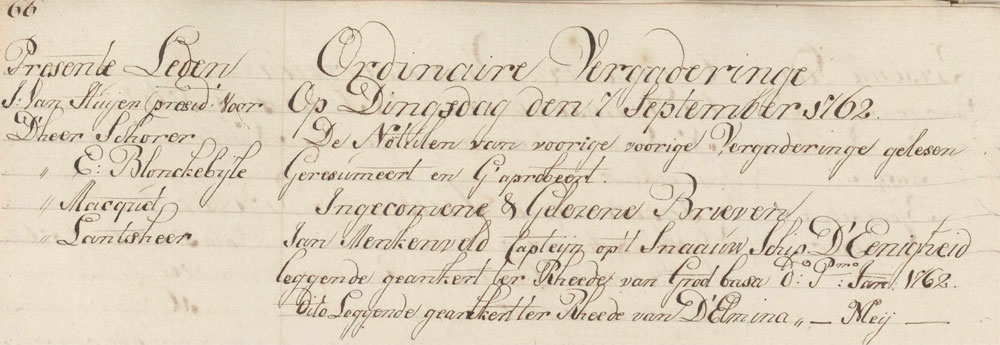 66
Presente Leden
J: Jan Stuijen presid: voor
D'heer Schorer
" E: Blonckebijle
" Macquet
" Lantsheer
Ordinaire Vergaderinge
Op Dingsdag den 7 September 1762.
De Nottulen van voorige voorige Vergaderinge gelesen
Geresumeert en G'aprobeort.
Ingecomene & Gelezene Brieven
Jan Menkenveld Capteijn op't Snaauw Schip D'Eenigheid
leggende geankert ter Rheede van Grod basa d:o P:mo Jan: 1762.
Dito Leggende geankert ter Rheede van D'Elmina „ — Meij —